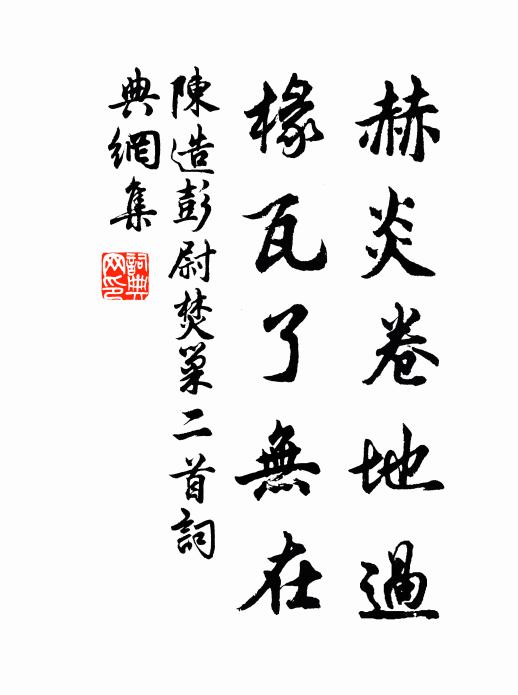 赫炎卷地過
椽瓦了無在
陳造彭尉焚巢二首詞
典網集
詞典網印